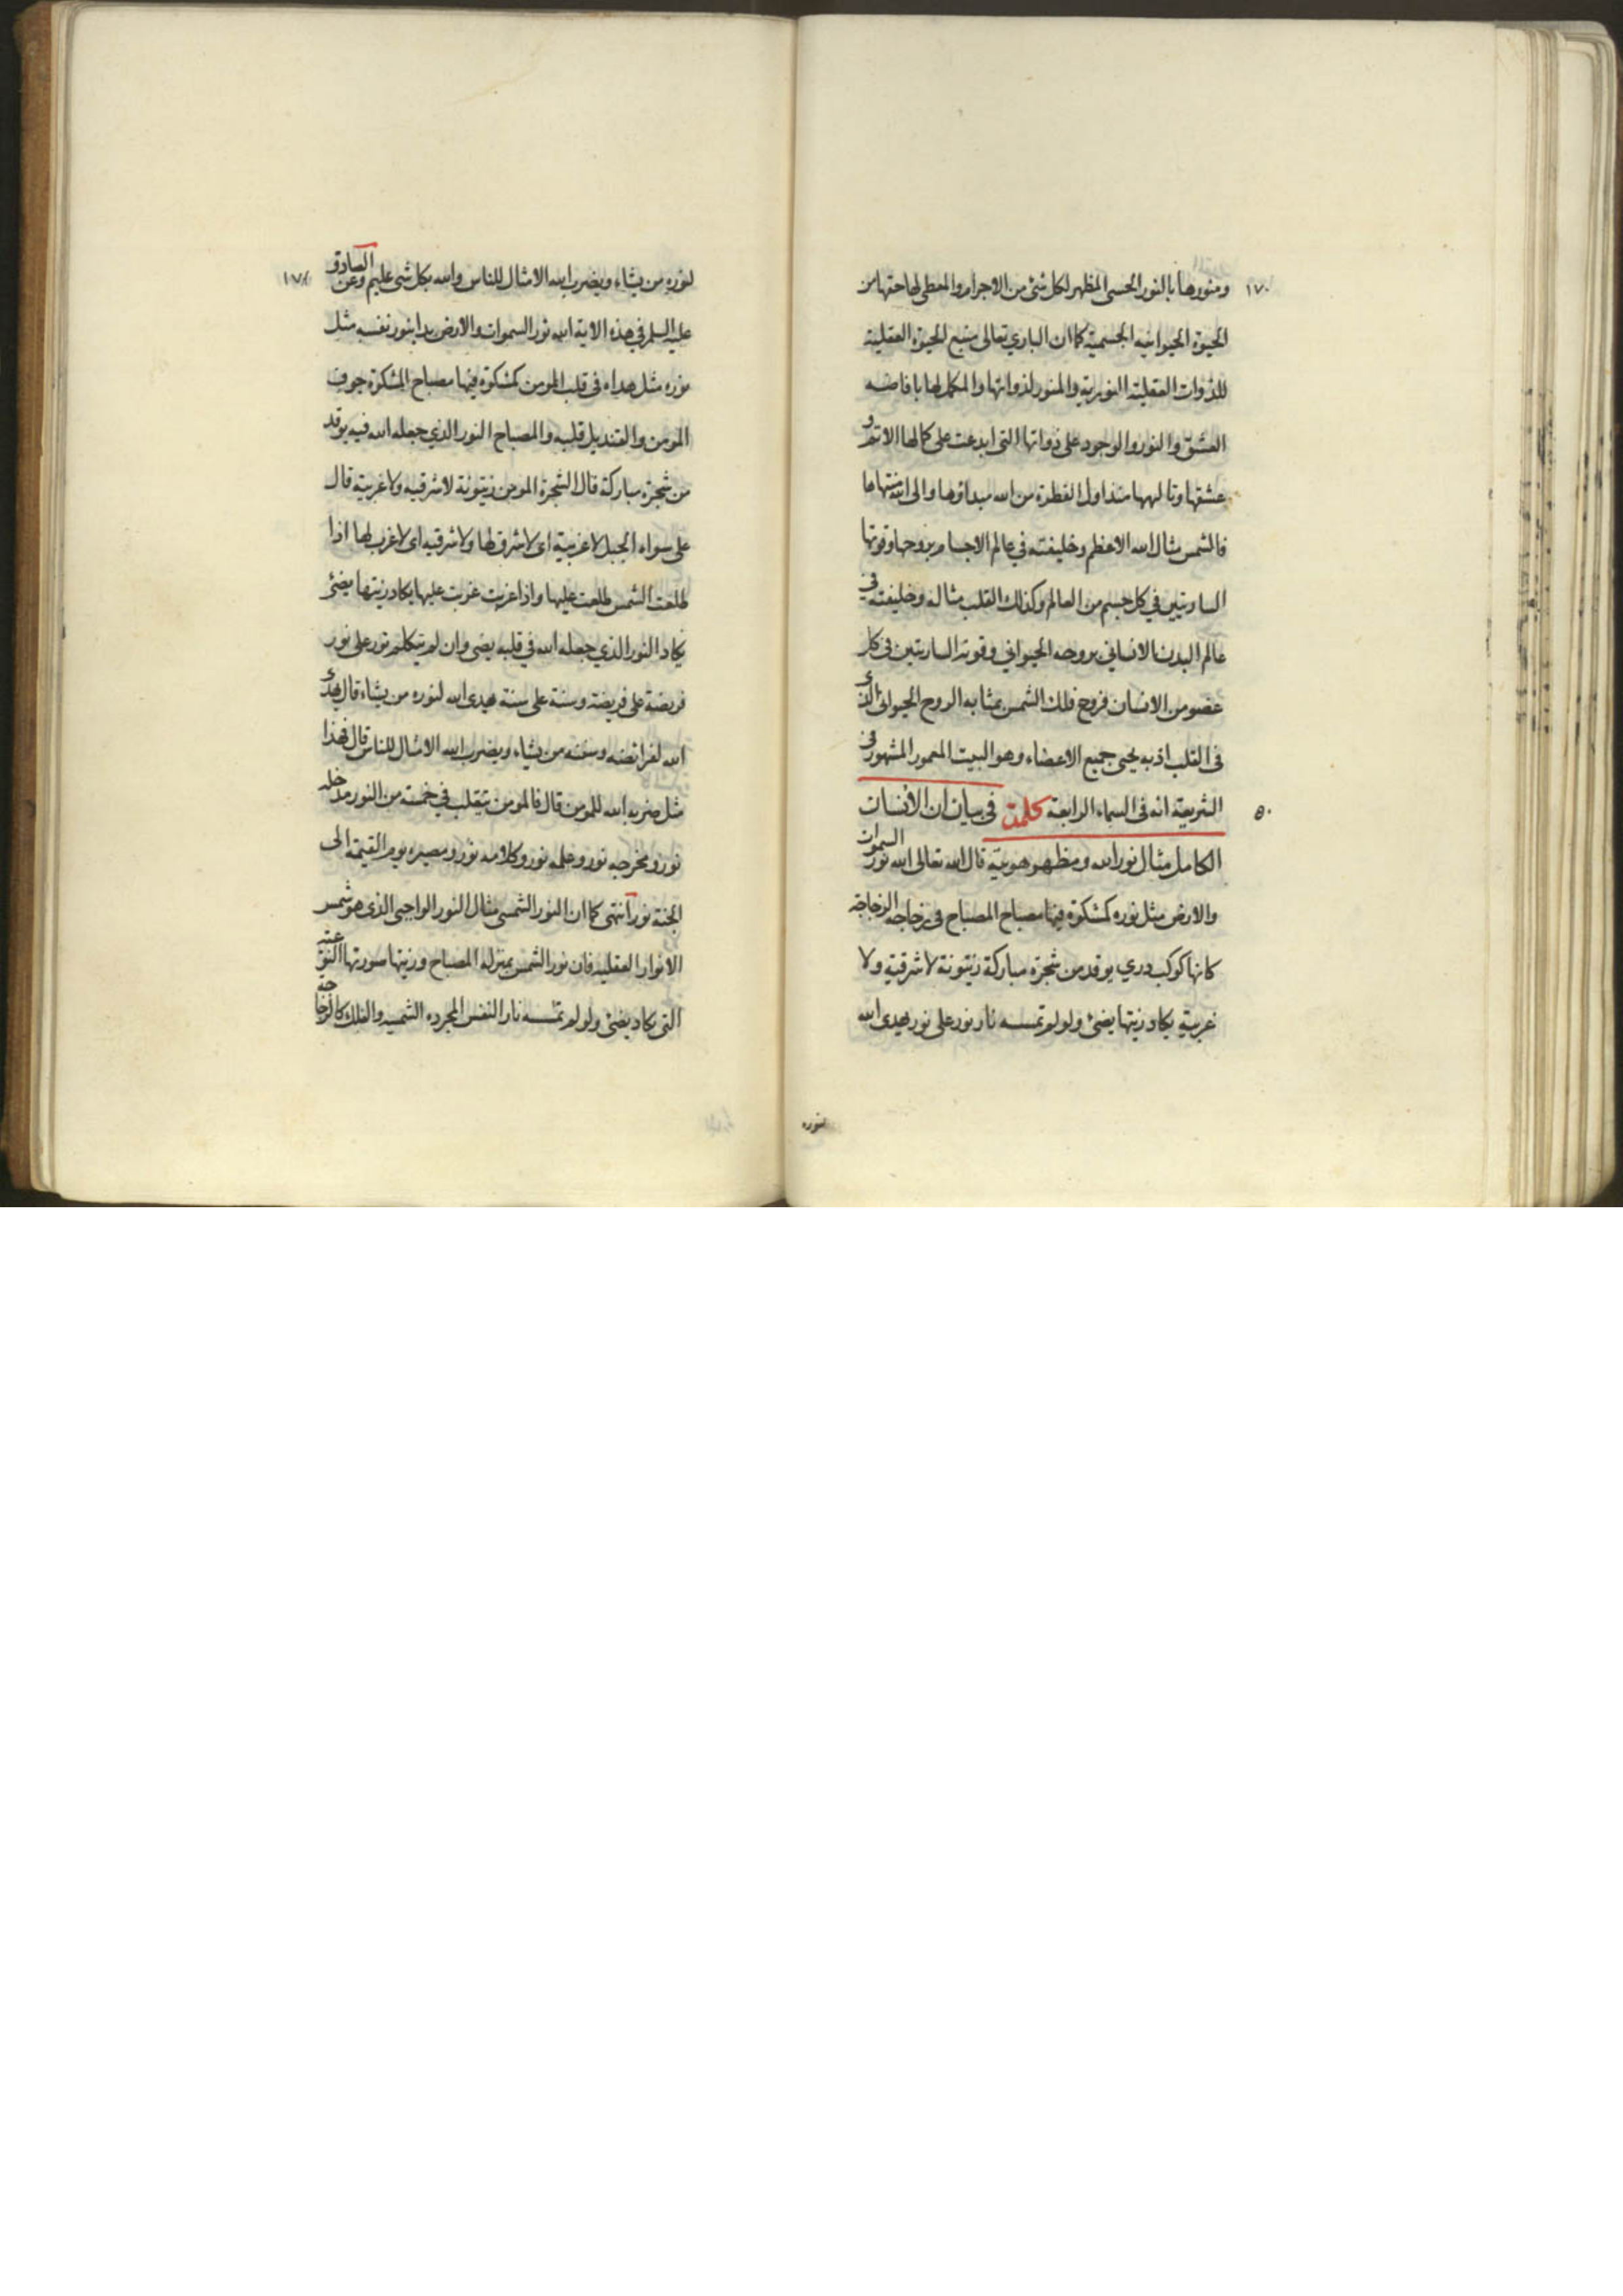 ١٧٠
ومنورها بالنور الحسى المظهر لكل شئ من الاجرام والمعطى لها حقها من
الحيوة الحيوانيه الجسمية كما ان الباري تعالى منبع الحيوة العقلية
للذوات العقلية النورية والمنور لذواتها والمكمل لها بافاضه
العشق والنور والوجود على ذواتها التى ابدعت على كمالها الاتم و
عشقها وتالهها منذ اول الفطرة من الله مبداؤها والى الله منتهاها
فالشمس مثال الله الاعظم وخليفته في عالم الاجسام بروحها وقوتها
الساريتين في كل جسم من العالم وكذلك القلب مثاله وخليفته فى
عالم البدن الانساني بروحه الحيواني وقوته الساريتين فى كل
عضو من الانسان فروح فلك الشمس بمثابه الروح الحيوانى الذى
فى القلب اذ به يحيى جميع الاعضاء وهو البيت المعمور المشهور فى
الشريعة انه فى السماء الرابعة كلمة فى بيان ان الانسان
٥٠
الكامل مثال نور الله ومظهر هويته قال الله تعالى الله نور السموات
والارض مثل نوره كمشكوة فيها مصباح المصباح فى زجاجه الزجاجة
كانها كوكب دري يوقد من شجرة مباركة زيتونة لا شرقية ولا
غربية يكاد زيتها يضئ ولو لم تمسسه نار نور على نور يهدى الله
لنوره
لنوره من يشاء ويضرب الله الامثال للناس والله بكل شى عليم وعن الصادق
١٧١
عليه السلم في هذه الاية الله نور السموات والارض بدا بنور نفسه مثل
نوره مثل هداه فى قلب المومن كمشكوة فيها مصباح المشكوة جوف
المومن والقنديل قلبه والمصباح النور الذي جعله الله فيه يوقد
من شجرة مباركة قال الشجرة المومن زيتونة لا شرقيه ولا غربية قال
على سواء الجبل لا غربية اى لا شرق لها ولا شرقيه اى لا غرب لها اذا
طلعت الشمس طلعت عليها واذا غربت غربت عليها يكاد زيتها يضئ
يكاد النور الذي جعله الله في قلبه يضى وان لم يتكلم نور على نور
فريضة على فريضة وسنة على سنة يهدى الله لنوره من يشاء قال يهدى
الله لفرائضه وسننه من يشاء ويضرب الله الامثال للناس قال فهذا
مثل ضربه الله للمومن قال فالمومن يتقلب في خمسة من النور مدخله
نور ومخرجه نور وعلمه نور وكلامه نور ومصيره يوم القيمة الى
الجنة نور انتهى كما ان النور الشمسى مثال النور الواجبى الذى هو شمس
الانوار العقليه فان نور الشمس بمنزله المصباح وزيتها صورتها النوعيه
التى يكاد يضئ ولو لم تمسسه نار النفس المجرده الشمسيه والفلك كالزجاجه